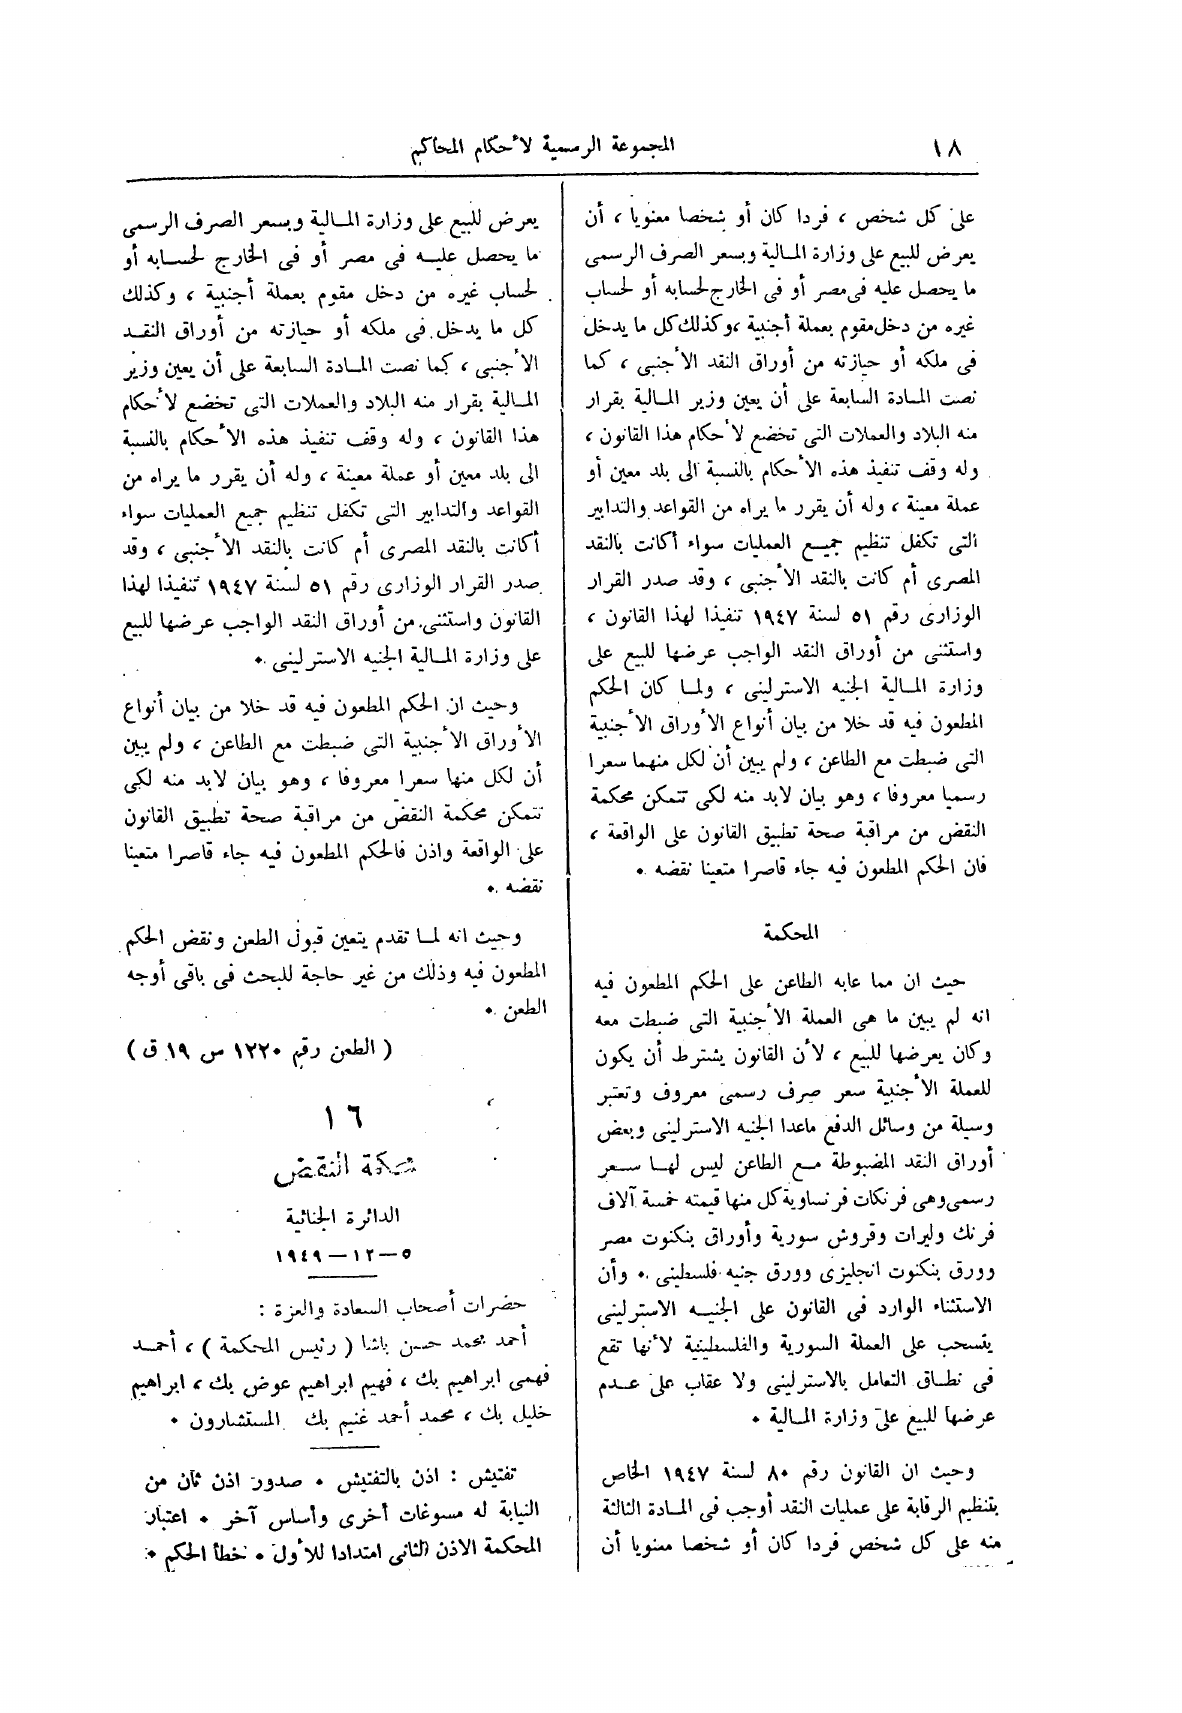 ١٨
المجموعة الرسمية لأحكام المحاكم
على كل شخص ، فردا كان أو شخصا معنويا ، أن
يعرض للبيع على وزارة المالية وبسعر الصرف الرسمى
ما يحصل عليه فى مصر أو فى الخارج لحسابه أو لحساب
غيره من دخل مقوم بعملة أجنبية ، وكذلك كل ما يدخل
فى ملكه أو حيازته من أوراق النقد الأجنبى ، كما
نصت المادة السابعة على أن يعين وزير المالية بقرار
منه البلاد والعملات التى تخضع لأحكام هذا القانون ،
وله وقف تنفيذ هذه الأحكام بالنسبة الى بلد معين أو
عملة معينة ، وله أن يقرر ما يراه من القواعد والتدابير
التى تكفل تنظيم جميع العمليات سواء أكانت بالنقد
المصرى أم كانت بالنقد الأجنبى ، وقد صدر القرار
الوزارى رقم ٥١ لسنة ١٩٤٧ تنفيذا لهذا القانون ،
واستثنى من أوراق النقد الواجب عرضها للبيع على
وزارة المالية الجنيه الاسترلينى ، ولما كان الحكم
المطعون فيه قد خلا من بيان أنواع الأوراق الأجنبية
التى ضبطت مع الطاعن ، ولم يبين أن لكل منهما سعرا
رسميا معروفا ، وهو بيان لابد منه لكى تتمكن محكمة
النقض من مراقبة صحة تطبيق القانون على الواقعة ،
فان الحكم المطعون فيه جاء قاصرا متعينا نقضه .
المحكمة
حيث ان مما عابه الطاعن على الحكم المطعون فيه
انه لم يبين ما هى العملة الأجنبية التى ضبطت معه
وكان يعرضها للبيع ، لأن القانون يشترط أن يكون
للعملة الأجنبية سعر صرف رسمى معروف وتعتبر
وسيلة من وسائل الدفع ماعدا الجنيه الاسترلينى وبعض
أوراق النقد المضبوطة مع الطاعن ليس لها سعر
رسمى وهى فرنكات فرنساوية كل منها قيمته خمسة آلاف
فرنك وليرات وقروش سورية وأوراق بنكنوت مصر
وورق بنكنوت انجليزى وورق جنيه فلسطينى . وأن
الاستثناء الوارد فى القانون على الجنيه الاسترلينى
ينسحب على العملة السورية والفلسطينية لأنها تقع
فى نطاق التعامل بالاسترلينى ولا عقاب على عدم
عرضها للبيع على وزارة المالية .
وحيث ان القانون رقم ٨٠ لسنة ١٩٤٧ الخاص
بتنظيم الرقابة على عمليات النقد أوجب فى المادة الثالثة
منه على كل شخص فردا كان أو شخصا معنويا أن
يعرض للبيع على وزارة المالية وبسعر الصرف الرسمى
ما يحصل عليه فى مصر أو فى الخارج لحسابه أو
لحساب غيره من دخل مقوم بعملة أجنبية ، وكذلك
كل ما يدخل فى ملكه أو حيازته من أوراق النقد
الأجنبى ، كما نصت المادة السابعة على أن يعين وزير
المالية بقرار منه البلاد والعملات التى تخضع لأحكام
هذا القانون ، وله وقف تنفيذ هذه الأحكام بالنسبة
الى بلد معين أو عملة معينة ، وله أن يقرر ما يراه من
القواعد والتدابير التى تكفل تنظيم جميع العمليات سواء
أكانت بالنقد المصرى أم كانت بالنقد الأجنبى ، وقد
صدر القرار الوزارى رقم ٥١ لسنة ١٩٤٧ تنفيذا لهذا
القانون واستثنى من أوراق النقد الواجب عرضها للبيع
على وزارة المالية الجنيه الاسترلينى .
وحيث ان الحكم المطعون فيه قد خلا من بيان أنواع
الأوراق الأجنبية التى ضبطت مع الطاعن ، ولم يبين
أن لكل منها سعرا معروفا ، وهو بيان لابد منه لكى
تتمكن محكمة النقض من مراقبة صحة تطبيق القانون
على الواقعة واذن فالحكم المطعون فيه جاء قاصرا متعينا
نقضه .
وحيث انه لما تقدم يتعين قبول الطعن ونقض الحكم
المطعون فيه وذلك من غير حاجة للبحث فى باقى أوجه
الطعن .
( الطعن رقم ١٢٢٠ س ١٩ ق )
١٦
محكمة النقض
الدائرة الجنائية
٥ – ١٢ – ١٩٤٩
حضرات أصحاب السعادة والعزة :
أحمد محمد حسن باشا ( رئيس المحكمة ) ، أحمد
فهمى ابراهيم بك ، فهيم ابراهيم عوض بك ، ابراهيم
خليل بك ، محمد أحمد غنيم بك المستشارون .
تفتيش : اذن بالتفتيش . صدور اذن ثان من
النيابة له مسوغات أخرى وأساس آخر . اعتبار
المحكمة الاذن الثانى امتدادا للأول . خطأ الحكم .